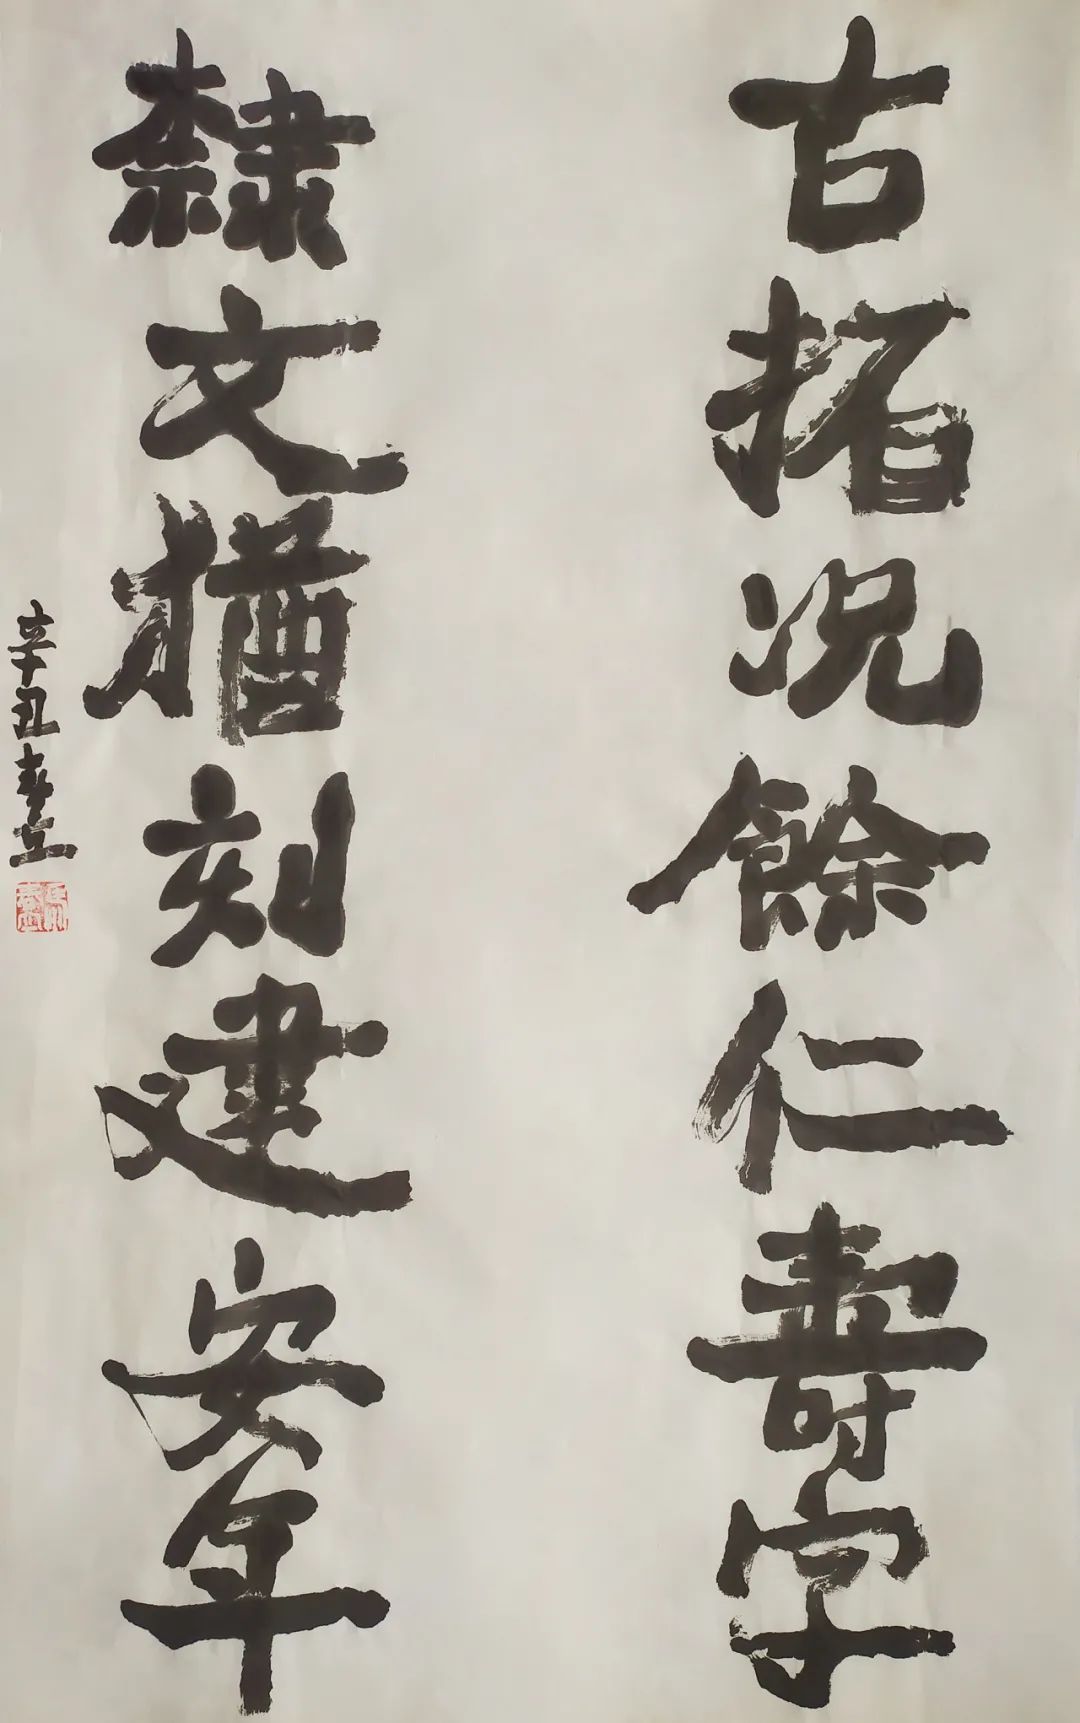 古拓况餘仁壽字
隸文猶刻建安年
辛丑